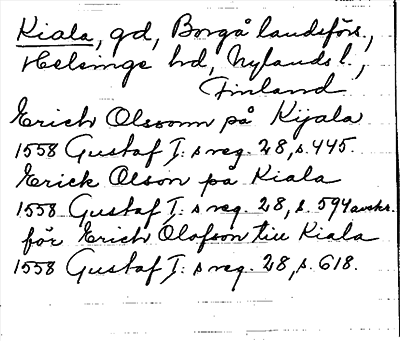 Kiala, gd, Borgå landsförs.,
Helsinge hd, Nylands l.,
Finland
Erich Olsson på Kijala
1558 Gustaf I:s reg. 28, s. 445.
Erick Olson på Kiala
1558 Gustaf I:s reg. 28, s. 594 avskr.
för Erich Olofson till Kiala
1558 Gustaf I:s reg. 28, s. 618.